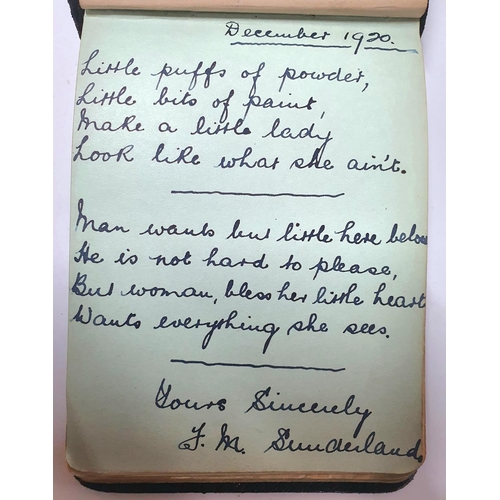 December 1920.
Little puffs of powder,
Little bits of paint,
Make a little lady
Look like what she ain't.
Man wants but little here below
He is not hard to please,
But woman, bless her little heart
Wants everything she sees.
Yours Sincerely
F. M. Sunderland.